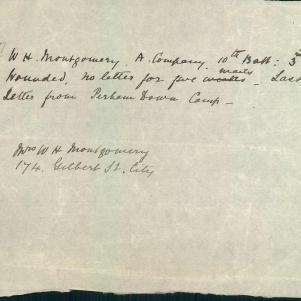 W H. Montgomery. A. Company. 10th Batt: 3
mails
Wounded, no letter for five weeks - Last
Letter from Perham Down Camp -
Mrs W H Montgomery
174. Gilbert St. City